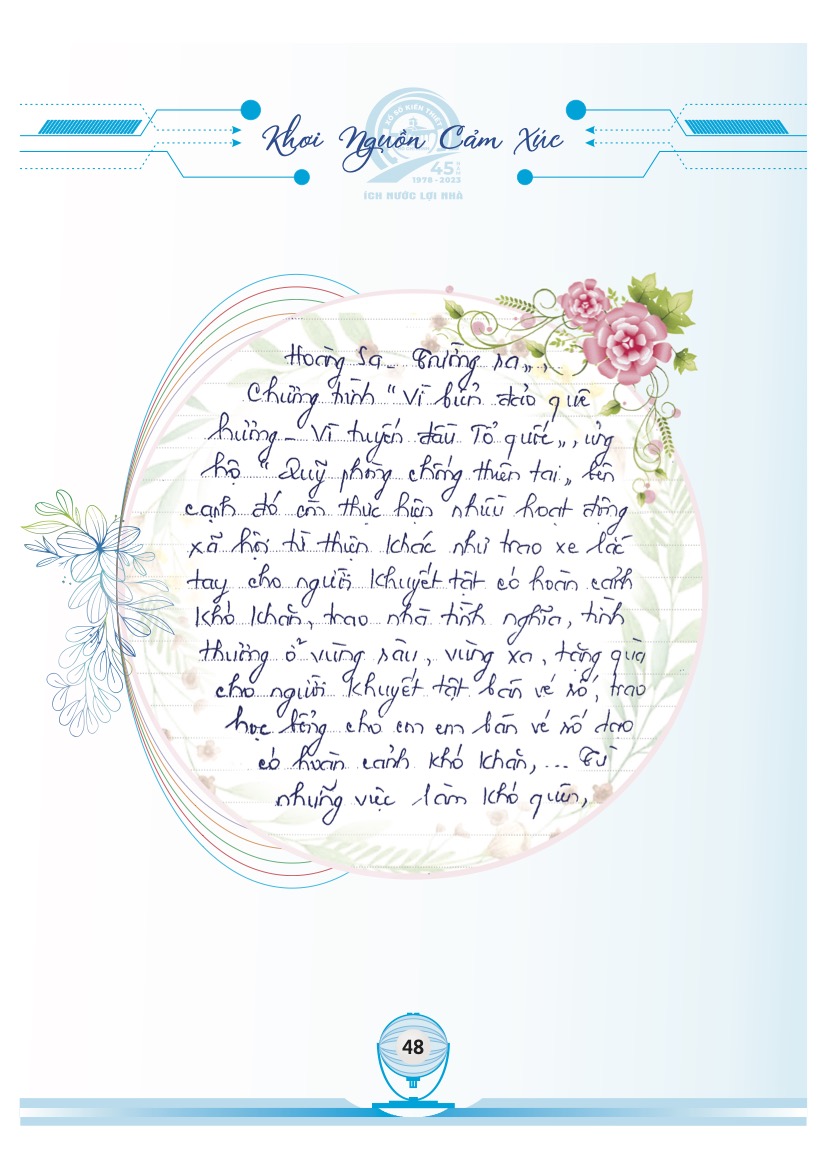 Khơi Nguồn Cảm Xúc
XỔ SỐ KIẾN THIẾT
45 NĂM
1978 - 2023
ÍCH NƯỚC LỢI NHÀ
Hoàng Sa - Trường Sa",
Chương trình "Vì biển đảo quê
hương - Vì tuyến đầu Tổ quốc", ủng
hộ "Quỹ phòng chống thiên tai" bên
cạnh đó còn thực hiện nhiều hoạt động
xã hội từ thiện khác như trao xe lắc
tay cho người khuyết tật có hoàn cảnh
khó khăn, trao nhà tình nghĩa, tình
thương ở vùng sâu, vùng xa, tặng quà
cho người khuyết tật bán vé số, trao
học bổng cho con em bán vé số dạo
có hoàn cảnh khó khăn,... Từ
những việc làm khó quên,
48